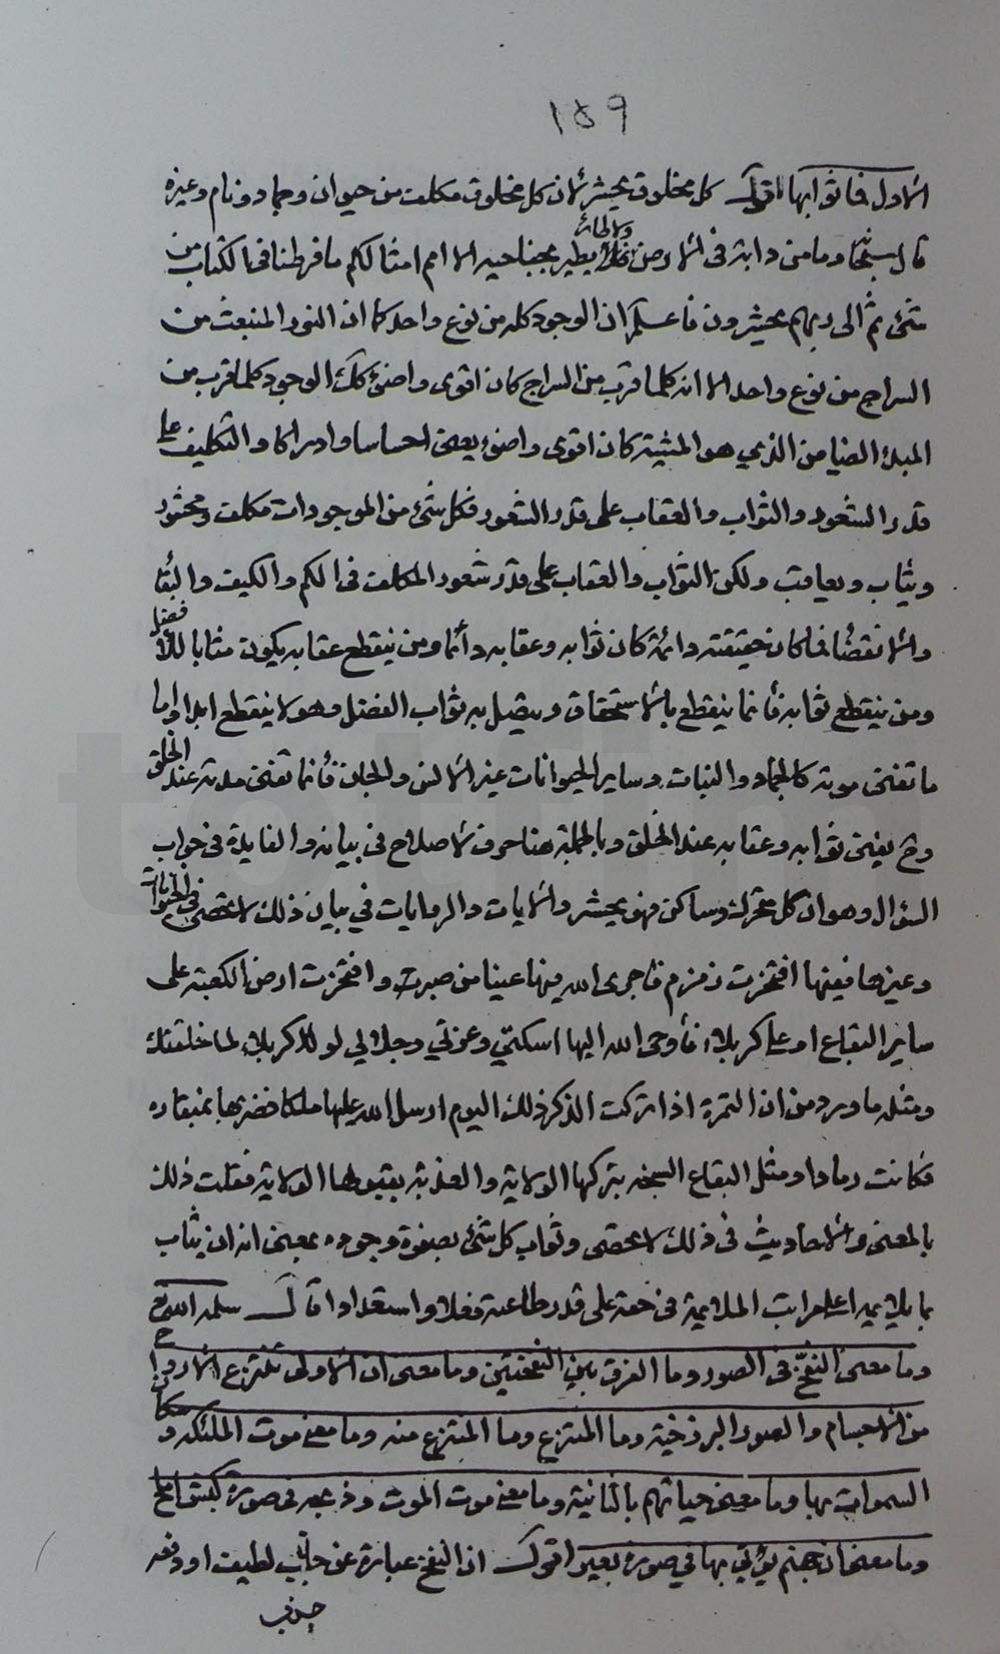 ١٥٩
الاول فما ثوابها اقول كل مخلوق يحشر لان كل مخلوق مكلف من حيوان وجماد ونام وغيره
قال سبحانه وما من دابة في الارض ولا طائر يطير بجناحيه الا امم امثالكم ما فرطنا في الكتاب من
شئ ثم الى ربهم يحشرون فاعلم ان الوجود كله من نوع واحد كما ان النور المنبعث من
السراج من نوع واحد الا انه كلما قرب من السراج كان اقوى واضوئ كك الوجود كلما قرب من
المبدء الفياض الذي هو المشية كان اقوى واضوء يعني احساسا وادراكا والتكليف على
قدر الشعور والثواب والعقاب على قدر الشعور فكل شئ من الموجودات مكلف ومحشور
ويثاب ويعاقب ولكن الثواب والعقاب على قدر شعور المكلف في الكم والكيف والبقا
والانقضا فما كان حقيقته دائمة كان ثوابه وعقابه دائما ومن ينقطع عقابه يكون مثابا للا فضل
ومن ينقطع ثوابه فانما ينقطع بالاستحقاق ويتصل به ثواب الفضل وهو لا ينقطع ابدا واما
ما تفنى كالجماد والنبات وساير الحيوانات غير الانس والجان فانما تفنى مدته عند الخلق
وح يفنى ثوابه وعقابه عند الخلق وبالجملة هنا حرف لا صلاح في بيانه والفايدة في جواب
السؤال وهو ان كل متحرك وساكن فهو يحشر والايات والروايات في بيان ذلك لا تحصى في الحيوانات
وغيرها فمنها افتخرت زمزم فاجرى الله فيها عينا من صبر وافتخرت ارض الكعبة على
ساير البقاع او على كربلاء فاوحى الله اليها اسكتي وعزتي وجلالي لولا كربلاء لما خلقتك
ومثله ما ورد من ان التمرة اذا تركت الذكر ذلك اليوم ارسل الله عليها ملكا فضربها بمنقاره
فكانت رمادا ومثل البقاع السبخة بتركها الولاية والعذبة بقبولها الولاية فقلت ذلك
بالمعنى والاحاديث في ذلك لا تحصى وثواب كل شئ بصفوة وجوده بمعنى انه ان يثاب
بما يلايمه اعلى مراتب الملايمة في حقه على قدر طاعته فعلا واستعدادا قال سلمه الله تع
وما معنى النفخ في الصور وما الفرق بين النفختين وما معنى ان الاولى تنتزع الارواح
من الاجسام والصور البرزخية وما المنتزع وما المنتزع منه وما معنى موت الملئكة وسكان
السموات بها وما معنى حياتهم بالثانية وما معنى موت الموت وذبحه في صورة كبش املح
وما معنى ان جهنم يؤتى بها في صورة بعير اقول ان النفخ عبارة عن جذب لطيف او دفعه
جذب